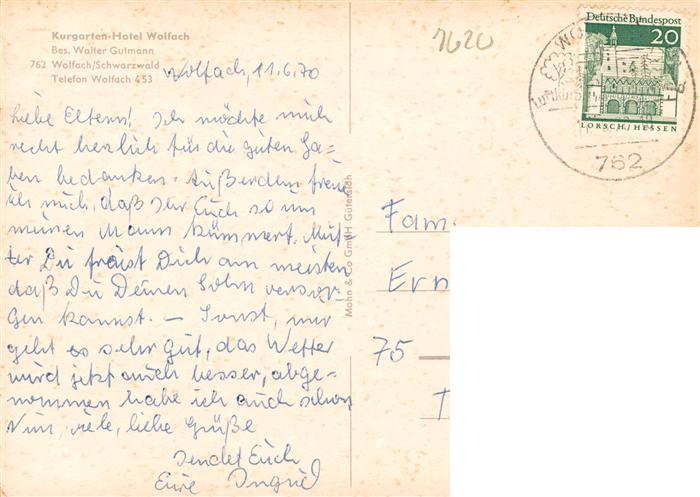 Kurgarten-Hotel Wolfach
Bes. Walter Gutmann
762 Wolfach/Schwarzwald
Telefon Wolfach 453
Wolfach, 11.6.70
Liebe Eltern! Ich möchte mich
recht herzlich für die guten Ga-
ben bedanken. Außerdem freut
es mich, daß Ihr Euch so um
meinen Mann kümmert. Mut-
ter Du freust Dich am meisten
daß Du Deinen Sohn versor-
gen kannst. – Sonst, mir
geht es sehr gut, das Wetter
wird jetzt auch besser, abge-
nommen habe ich auch schon
Nun, viele, liebe Grüße
sendet Euch
Eure Ingrid
Mohn & Co GmbH Gütersloh
7620
Deutsche Bundespost
20
LORSCH/HESSEN
762
Fam.
Ern
75